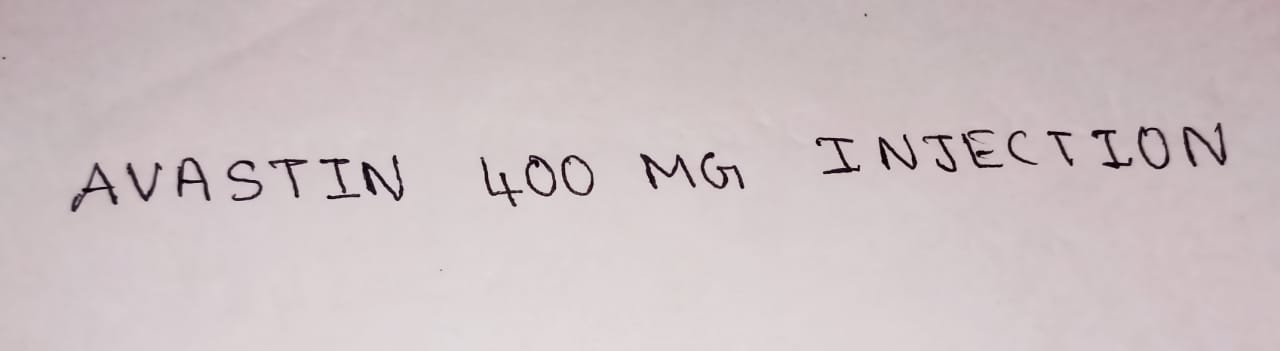 AVASTIN 400 MG INJECTION